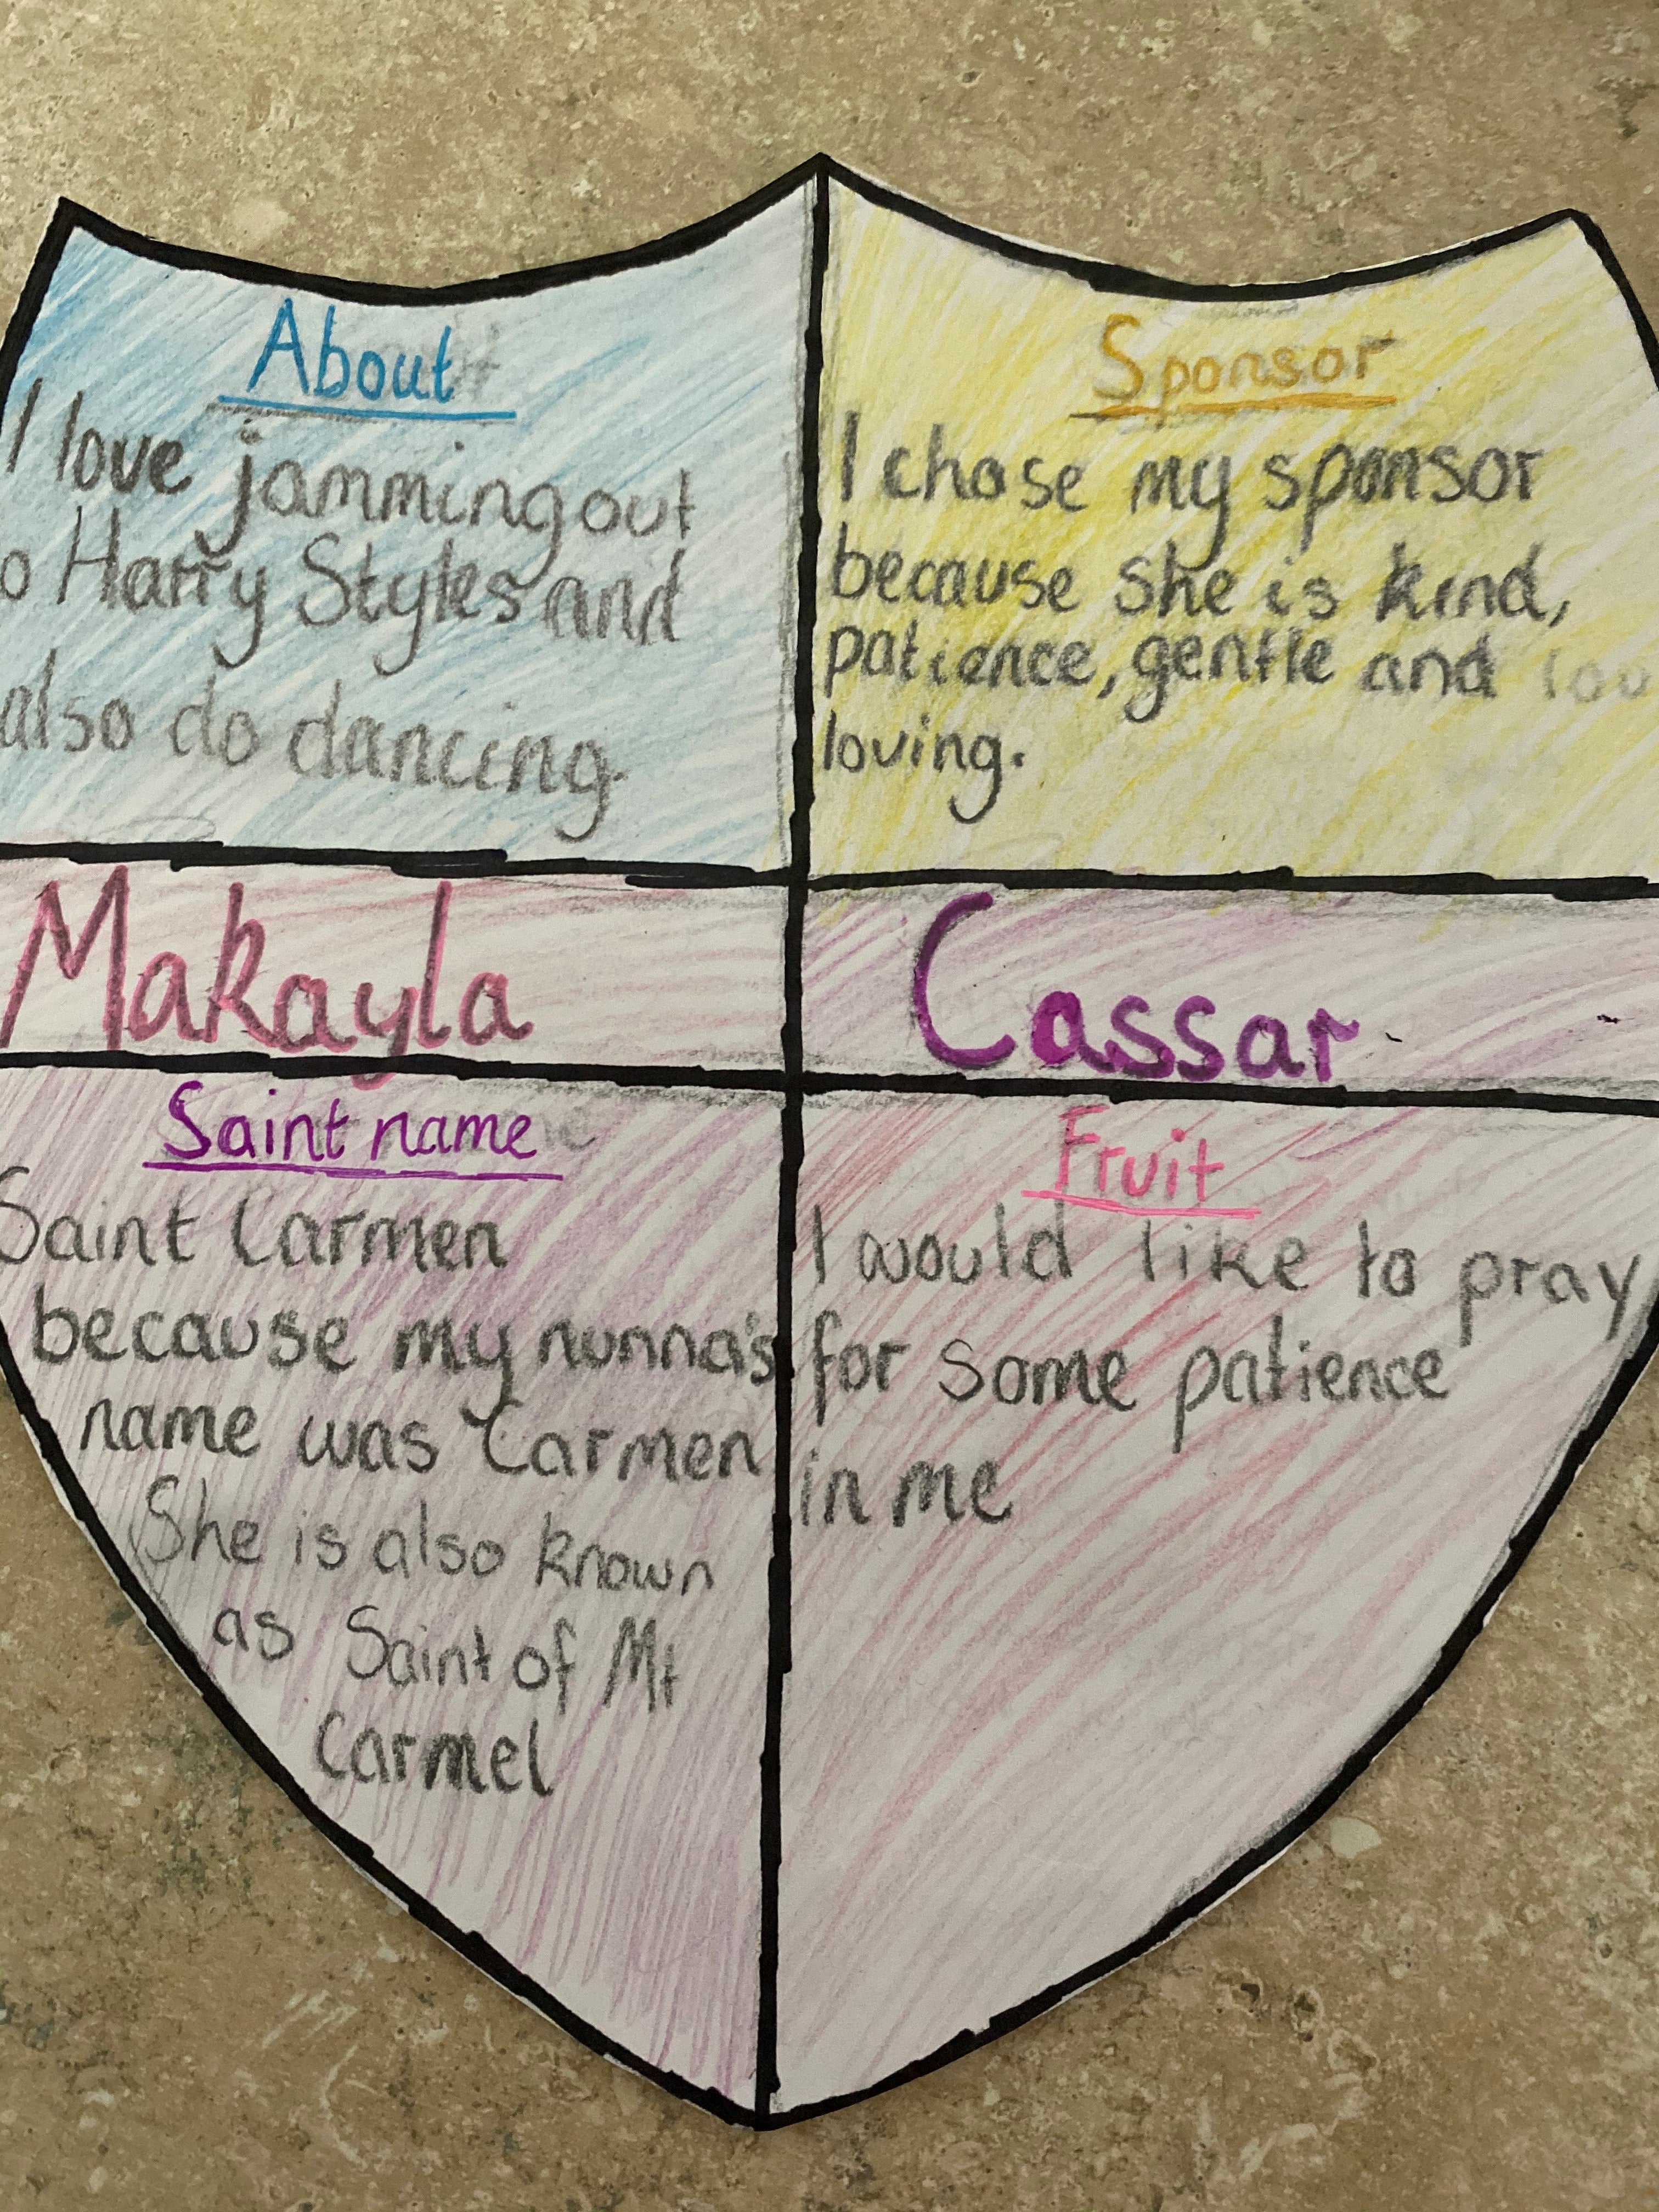 About
I love jamming out
o Harry Styles and
also do dancing.
Sponsor
I chose my sponsor
because she is kind,
patience, gentle and
loving.
Makayla
Cassar
Saint name
Saint Carmen
because my nunna's
name was Carmen
She is also known
as Saint of Mt
Carmel
Fruit
I would like to pray
for some patience
in me